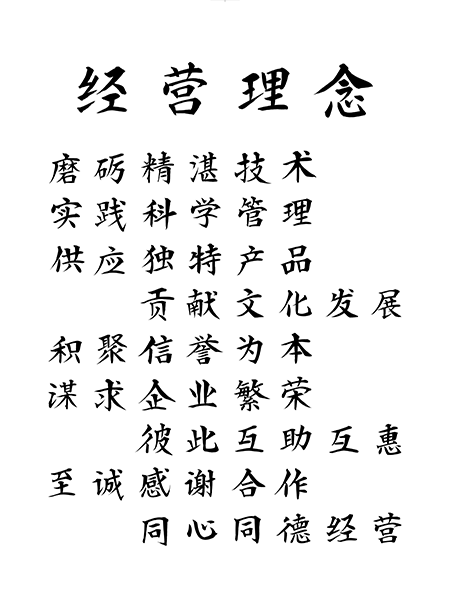 经营理念
磨砺精湛技术
实践科学管理
供应独特产品
贡献文化发展
积聚信誉为本
谋求企业繁荣
彼此互助互惠
至诚感谢合作
同心同德经营